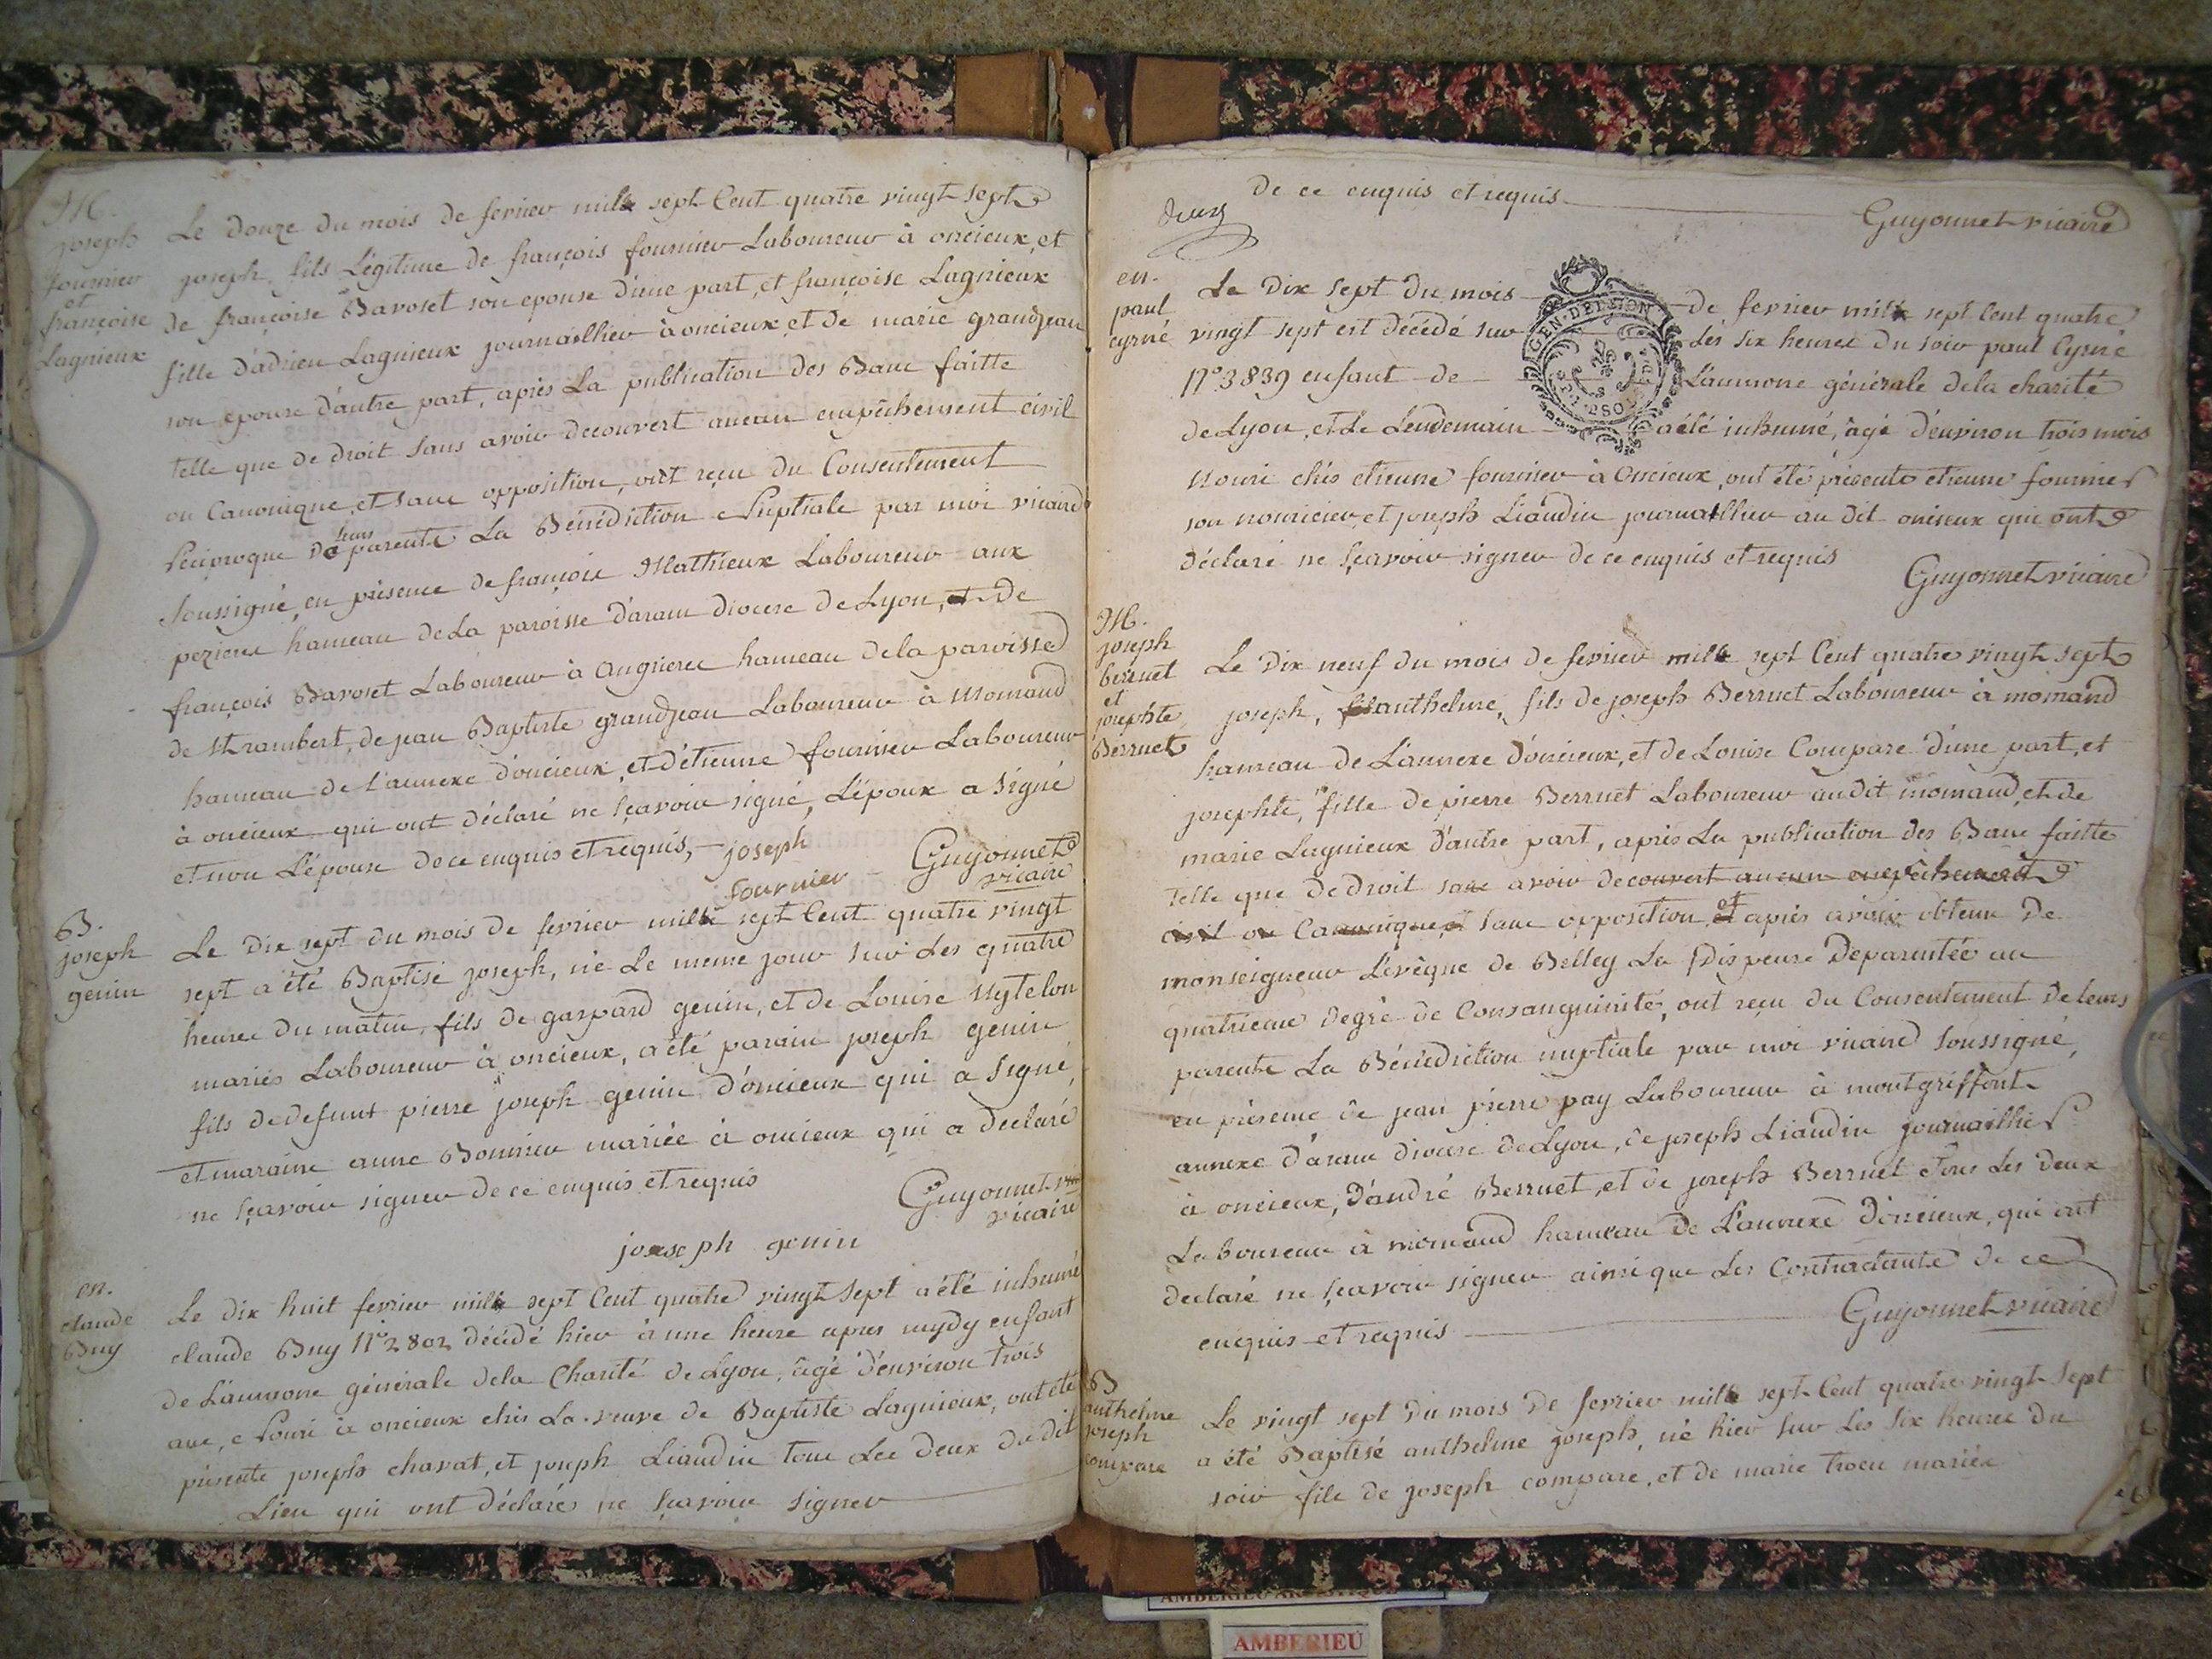 M.
joseph
fournier
et
françoise
Lagnieux
Le douze du mois de fevrier mille sept Cent quatre vingt sept
joseph, fils Légitime de françois fournier Laboureur à oncieux, et
de françoise Bavoset son epouse d'une part, et françoise Lagnieux
fille d'adrien Lagnieux journaillier à oncieux et de marie grandjean
son epouse d'autre part, après La publication des Banc faitte
telle que de droit sans avoir decouvert aucun empêchement civil
ou Canonique, et sanc opposition, ont reçu du Consentement
réciproque de leurs parents La Bénédiction Nuptiale par moi vicaire
soussigné, en présence de françois Mathieux Laboureur aux
pezieres hameau de La paroisse d'aranc diocese de Lyon, de
françois Bavoset Laboureur à angrieres hameau de la paroisse
de st rambert, de jean Baptiste grandjean Laboureur à Momand
hameau de l'annexe d'oncieux, et d'étienne fournier Laboureur
à oncieux qui ont déclaré ne sçavoir signé, L'époux a signé
et non L'épouse de ce enquis et requis, joseph
fournier Guyonnet
vicaire
B.
joseph
genin
Le dix sept du mois de fevrier mille sept Cent quatre vingt
sept a été Baptisé joseph, né Le meme jour sur Les quatre
heures du matin, fils de gaspard genin, et de Louise Nytelon
mariés Laboureur à oncieux, a été parain joseph genin
fils de defunt pierre joseph genin d'oncieux qui a signé,
et maraine anne Bonnier mariée à oncieux qui a declaré
ne sçavoir signer de ce enquis et requis
Guyonnet
vicaire
joseph genin
en.
claude
Buy
Le dix huit fevrier mille sept Cent quatre vingt sept a été inhumé
claude Buy N° 2802 décédé hier à une heure apres mydy enfant
de L'aumone générale de la Charité de Lyon, âgé d'environ trois
anc, Nouri à oncieux chés La veuve de Baptiste Lagnieux, ont été
présents joseph charvat, et joseph Liaudin tous Les deux du dit
Lieu qui ont déclarés ne sçavoir signer
de ce enquis et requis
Guyonnet vicaire
en.
paul
cyrné
Le Dix sept du mois de fevrier mille sept Cent quatre
vingt sept est décédé sur Les six heures du soir paul Cyrné
N° 3839 enfant de L'aumone générale de la charité
de Lyon, et Le Lendemain a été inhumé, âgé d'environ trois mois
Nouri chés etienne fournier à Oncieux, ont été présents etienne fournier
son nouricier, et joseph Liaudin journaillier au dit oncieux qui ont
déclaré ne sçavoir signer de ce enquis et requis
Guyonnet vicaire
GEN. DE LYON
M.
joseph
berruet
et
josephte
Berruet
Le dix neuf du mois de fevrier mille sept Cent quatre vingt sept
joseph, anthelme, fils de joseph Berruet Laboureur à momand
hameau de L'annexe d'oncieux, et de Louise Compare d'une part, et
josephte, fille de pierre Berruet Laboureur au dit momand, et de
marie Lagnieux d'autre part, après La publication des Banc faitte
telle que de droit sanc avoir decouvert aucun empêchement
civil ou Canonique, et sanc opposition et après avoir obtenu de
monseigneur L'évêque de Belley La Dispense De parentée au
quatrieme degré de Consanguinité, ont reçu du Consentement de leurs
parents La Bénédiction nuptiale par moi vicaire soussigné,
en présence de jean pierre pay Laboureur à montgriffont
annexe d'aranc diocese de Lyon, de joseph Liaudin journaillier
à oncieux, d'andré Berruet, et de joseph Berruet Tous Les deux
Laboureurs à momand hameau de L'annexe d'oncieux, qui ont
déclaré ne sçavoir signer ainsi que Les Contractants de ce
enquis et requis Guyonnet vicaire
B
anthelme
joseph
compare
Le vingt sept du mois de fevrier mille sept Cent quatre vingt sept
a été Baptisé anthelme joseph, né hier sur Les six heures du
soir fils de joseph compare, et de marie trocu mariés
AMBERIEU